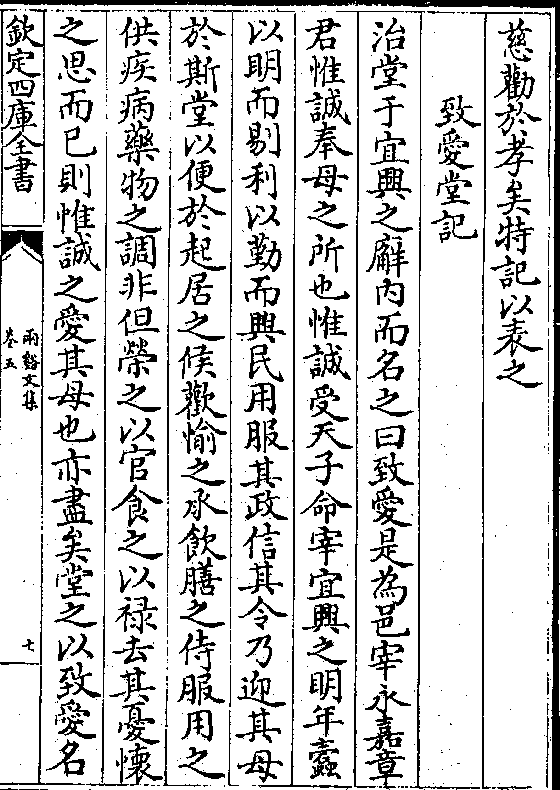 慈勸於孝矣特記以表之
致愛堂記
治堂于宜興之廨内而名之曰致愛是為邑宰永嘉章
君惟誠奉母之所也惟誠受天子命宰宜興之明年蠹
以明而剔利以勤而興民用服其政信其令乃迎其母
於斯堂以便於起居之候歡愉之承飲膳之侍服用之
供疾病藥物之調非但榮之以官食之以禄去其憂懷
之思而已則惟誠之愛其母也亦盡矣堂之以致愛名
欽定四庫全書
兩谿文集
卷五
七